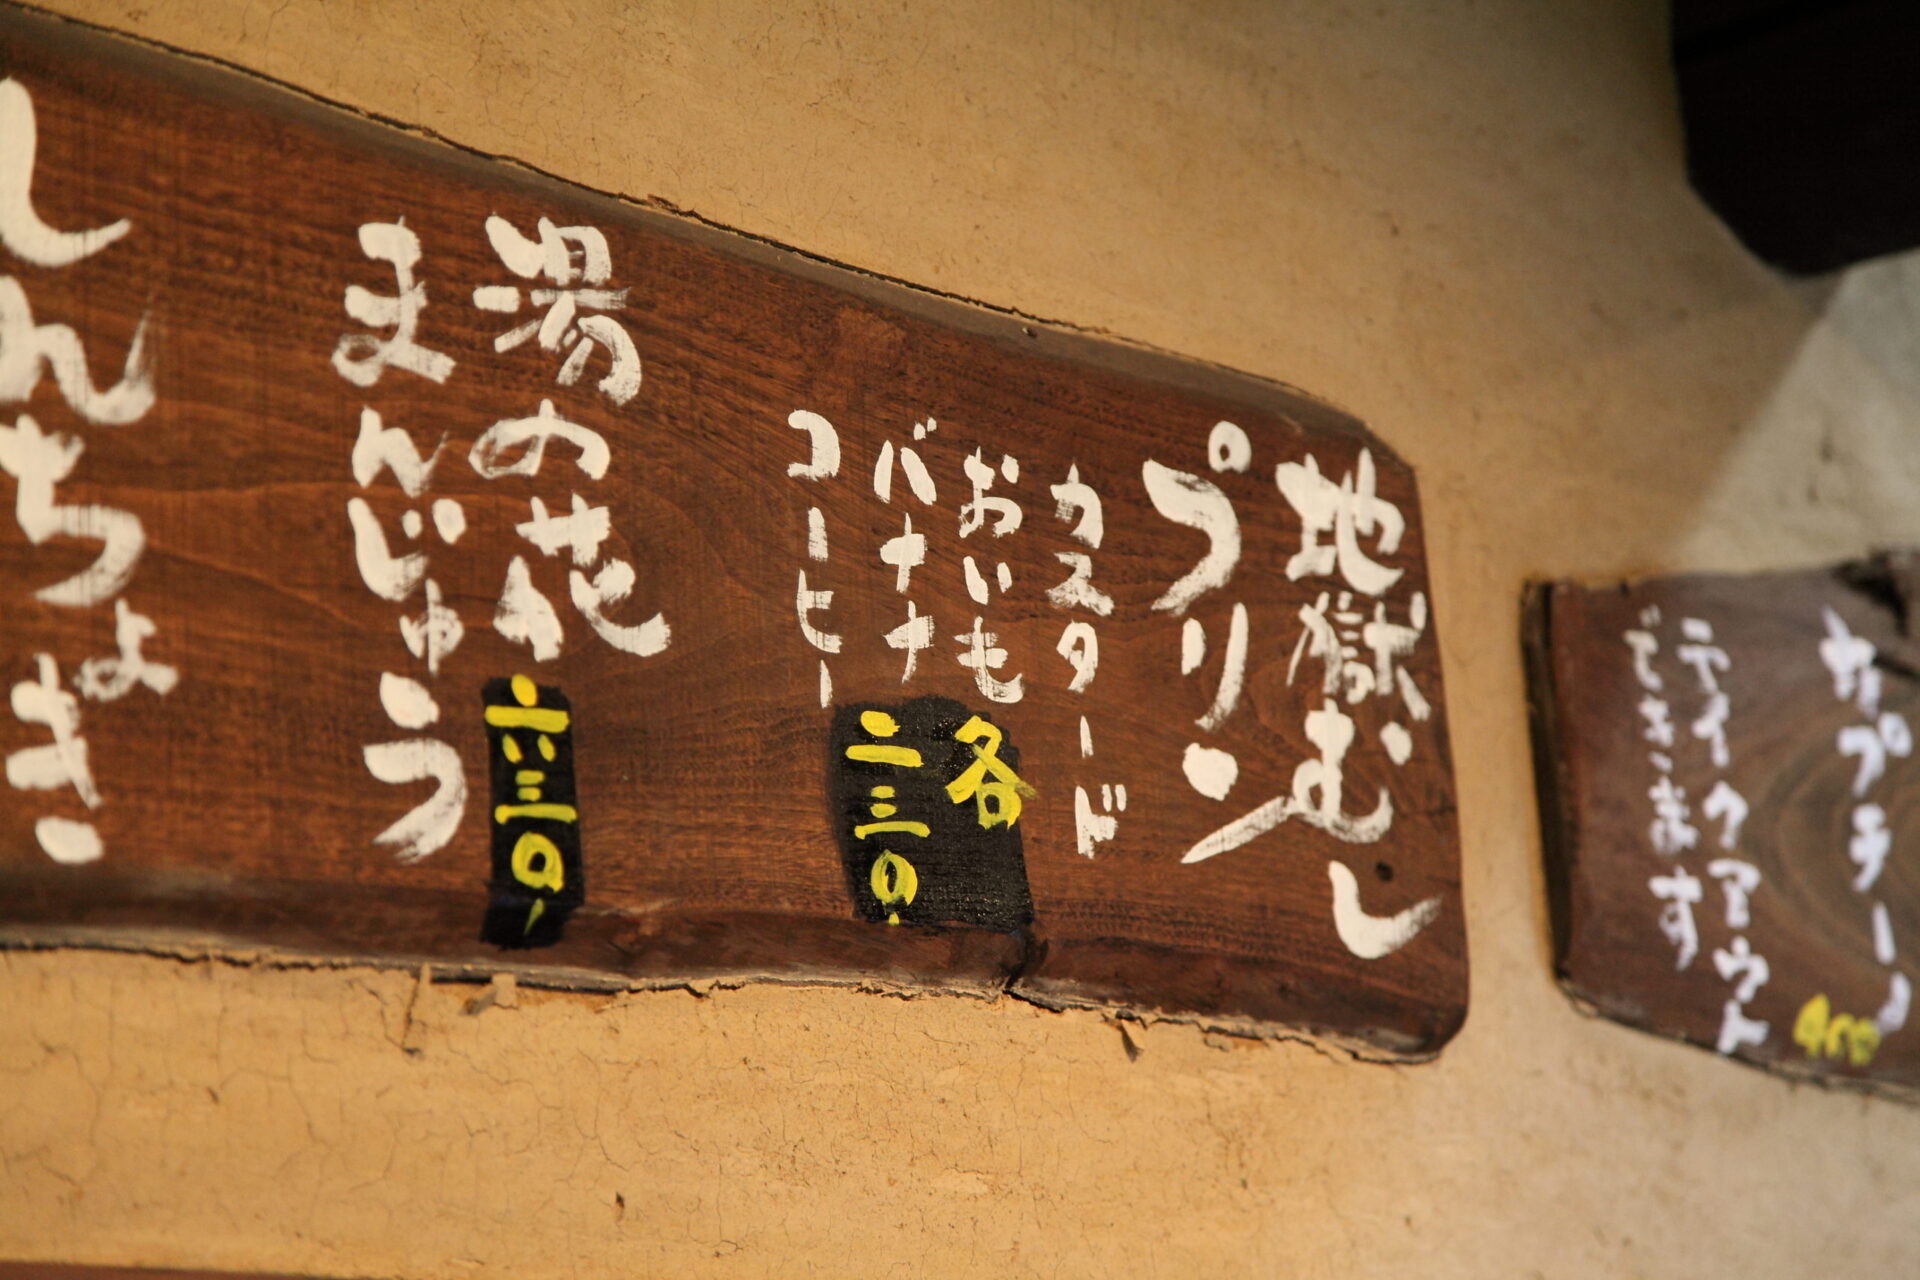 地獄むし
プリン
カスタード
おいも
バナナ
コーヒー
各
二三〇
湯の花
まんじゅう
六ヶ
六三〇
しんちょき
カプチーノ
テイクアウト
できます